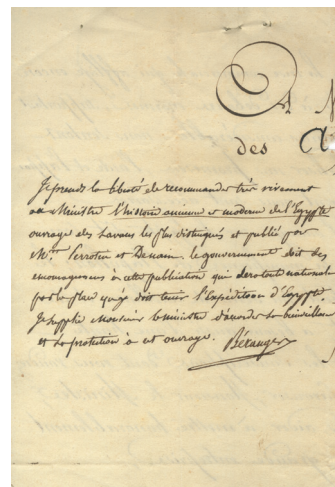 A
des
Je prends la liberté de recommander très vivement
au Ministre l'histoire ancienne et moderne de l'Egypte
ouvrage des Savans les plus distingués et publié par
M.rs et Denain. le gouvernement doit des
encouragemens à cette publication qui devient nationale
par la place qu'y doit tenir l'Expédition d'Egypte
Je supplie Monsieur le ministre d'accorder sa bienveillance
et sa protection à cet ouvrage. Béranger